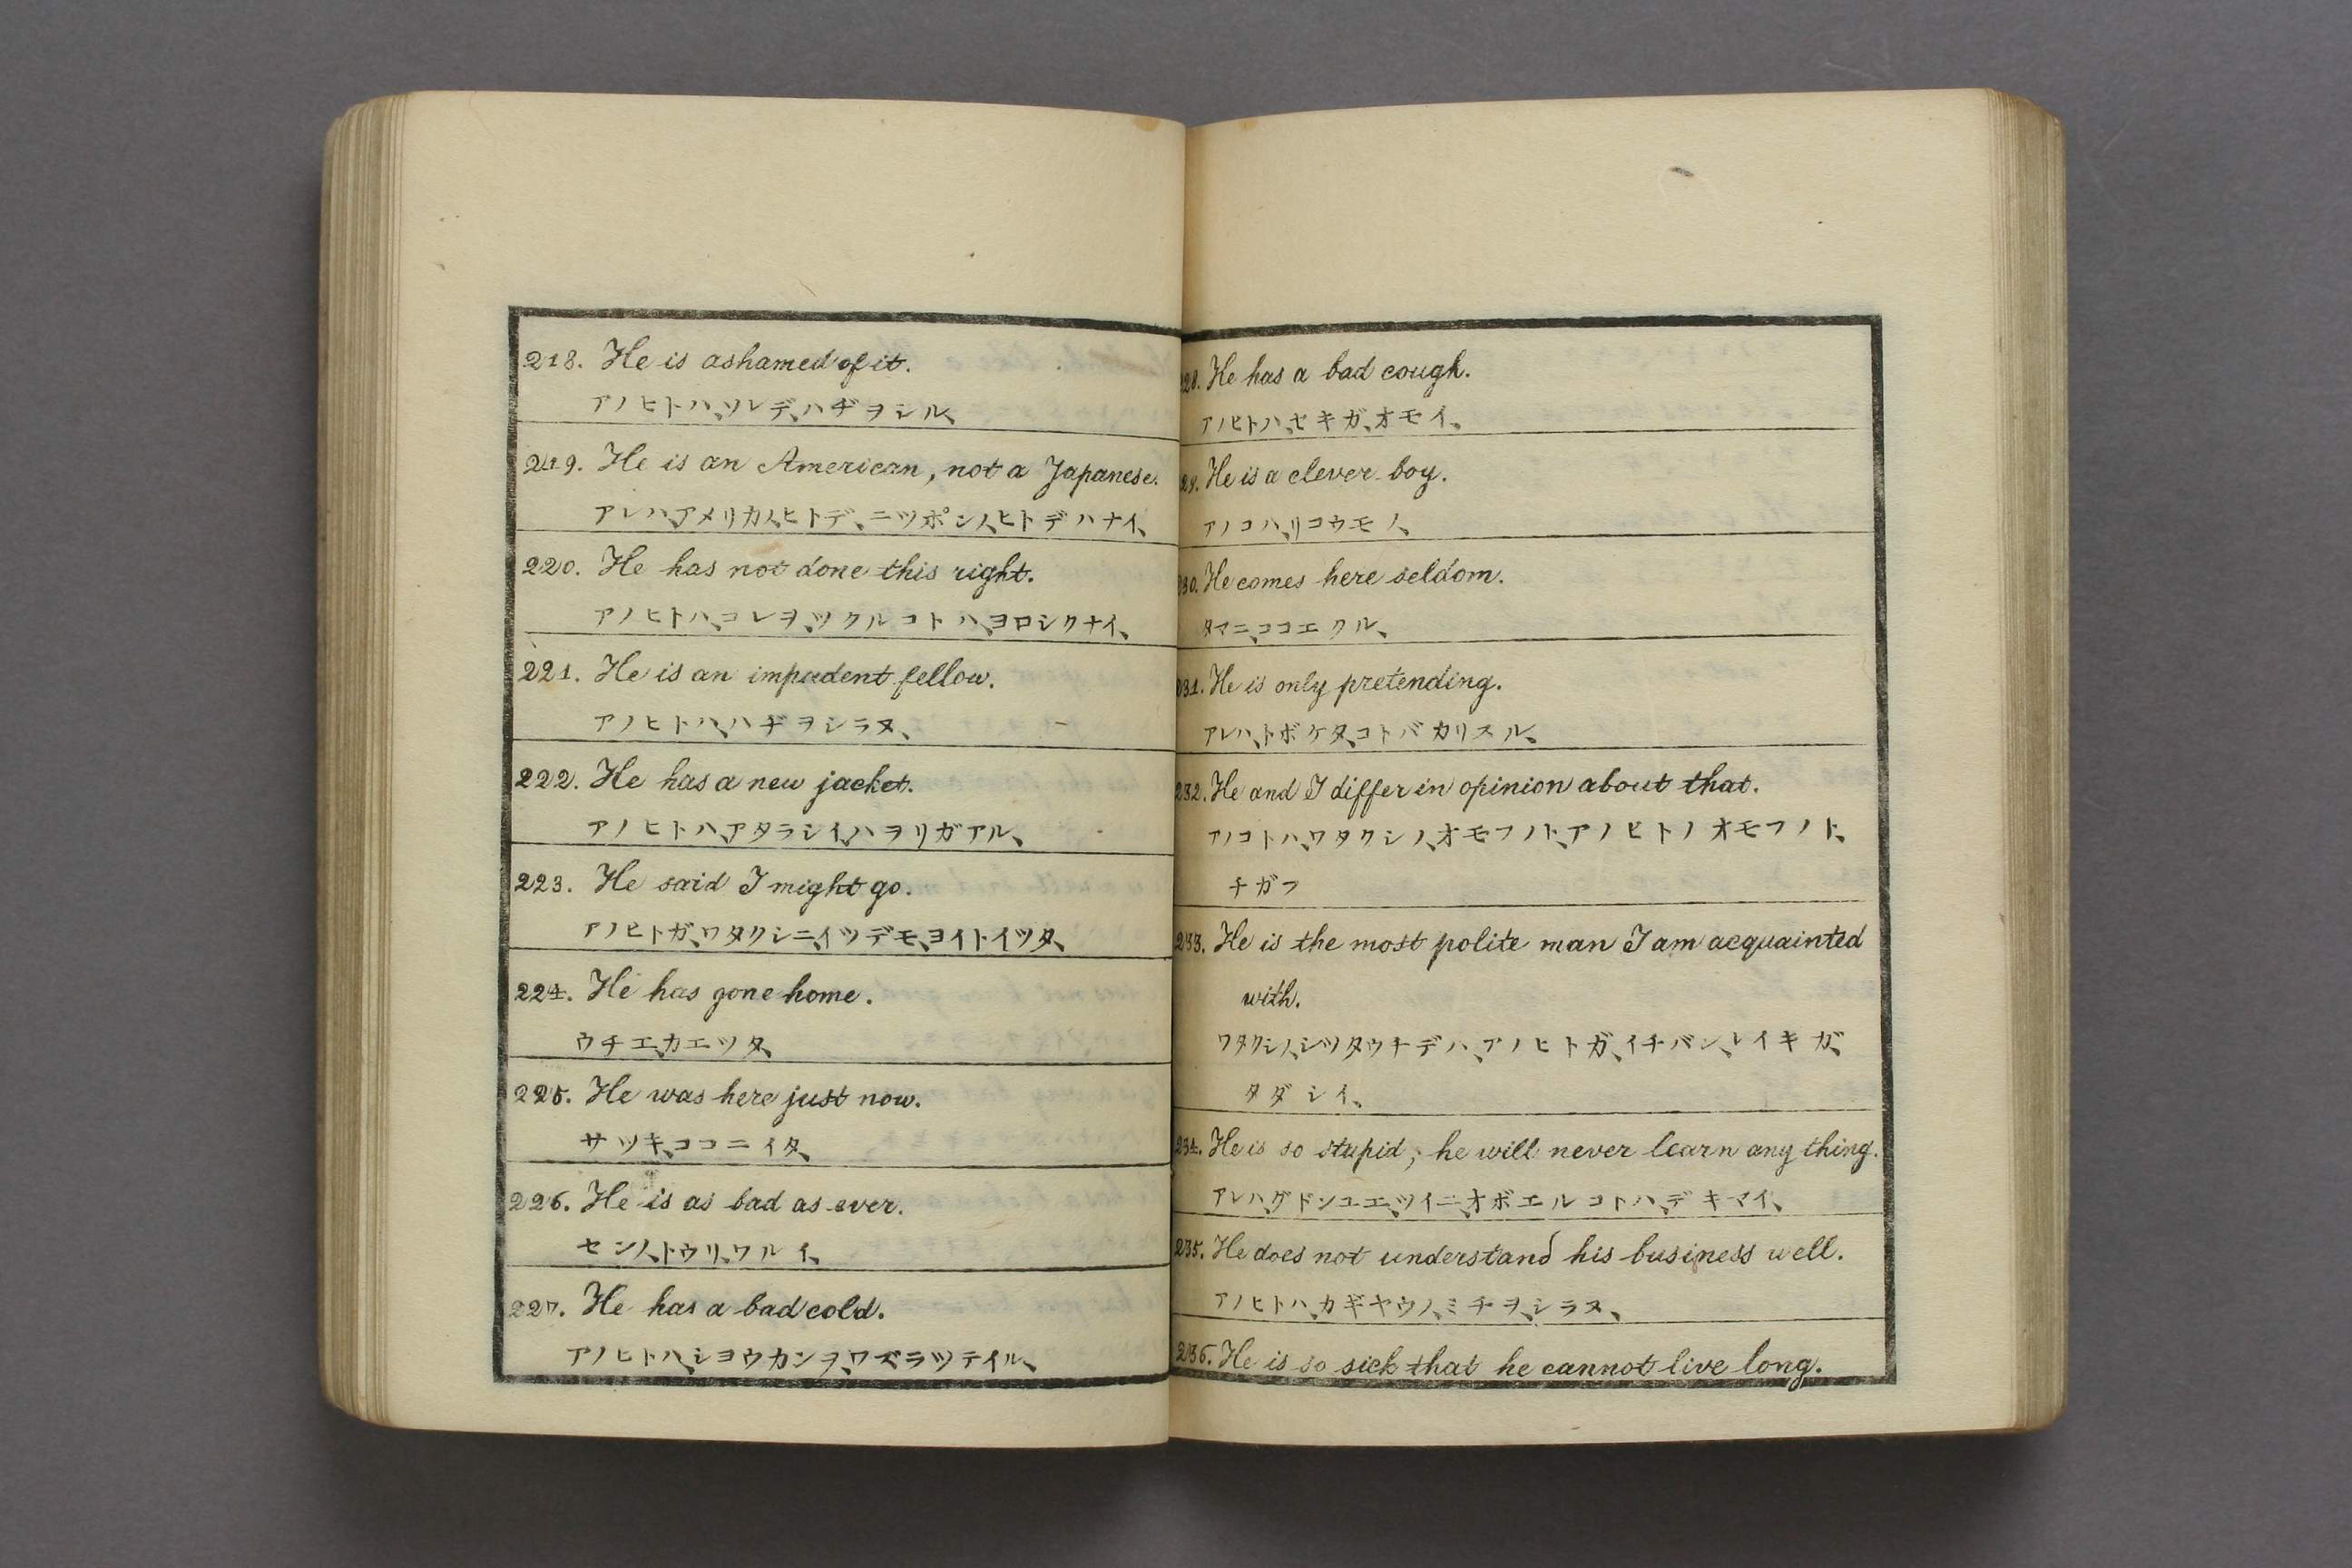 218. He is ashamed of it.
アノヒトハ、ソレデ、ハヂヲシル、
219. He is an American, not a Japanese.
アレハ、アメリカノ、ヒトデ、ニツポンノ、ヒトデハナイ、
220. He has not done this right.
アノヒトハ、コレヲ、ツクルコトハ、ヨロシクナイ、
221. He is an impudent fellow.
アノヒトハ、ハヂヲシラヌ、
222. He has a new jacket.
アノヒトハ、アタラシイ、ハヲリガアル、
223. He said I might go.
アノヒトガ、ワタクシニ、イツデモ、ヨイトイツタ、
224. He has gone home.
ウチエ、カエツタ、
225. He was here just now.
サツキ、ココニイタ、
226. He is as bad as ever.
センノ、トウリ、ワルイ、
227. He has a bad cold.
アノヒトハ、シヨウカンヲ、ワズラツテイル、
228. He has a bad cough.
アノヒトハ、セキガ、オモイ、
229. He is a clever boy.
アノコハ、リコウモノ、
230. He comes here seldom.
タマニ、ココエクル、
231. He is only pretending.
アレハ、トボケタ、コトバカリスル、
232. He and I differ in opinion about that.
アノコトハ、ワタクシノ、オモフノト、アノヒトノオモフノト、
チガフ
233. He is the most polite man I am acquainted
with.
ワタクシノ、シツタウチデハ、アノヒトガ、イチバン、レイギガ、
タダシイ、
234. He is so stupid; he will never learn any thing.
アレハ、グドンユエ、ツイニ、オボエルコトハ、デキマイ、
235. He does not understand his business well.
アノヒトハ、カギヤウノ、ミチヲ、シラヌ、
236. He is so sick that he cannot live long.